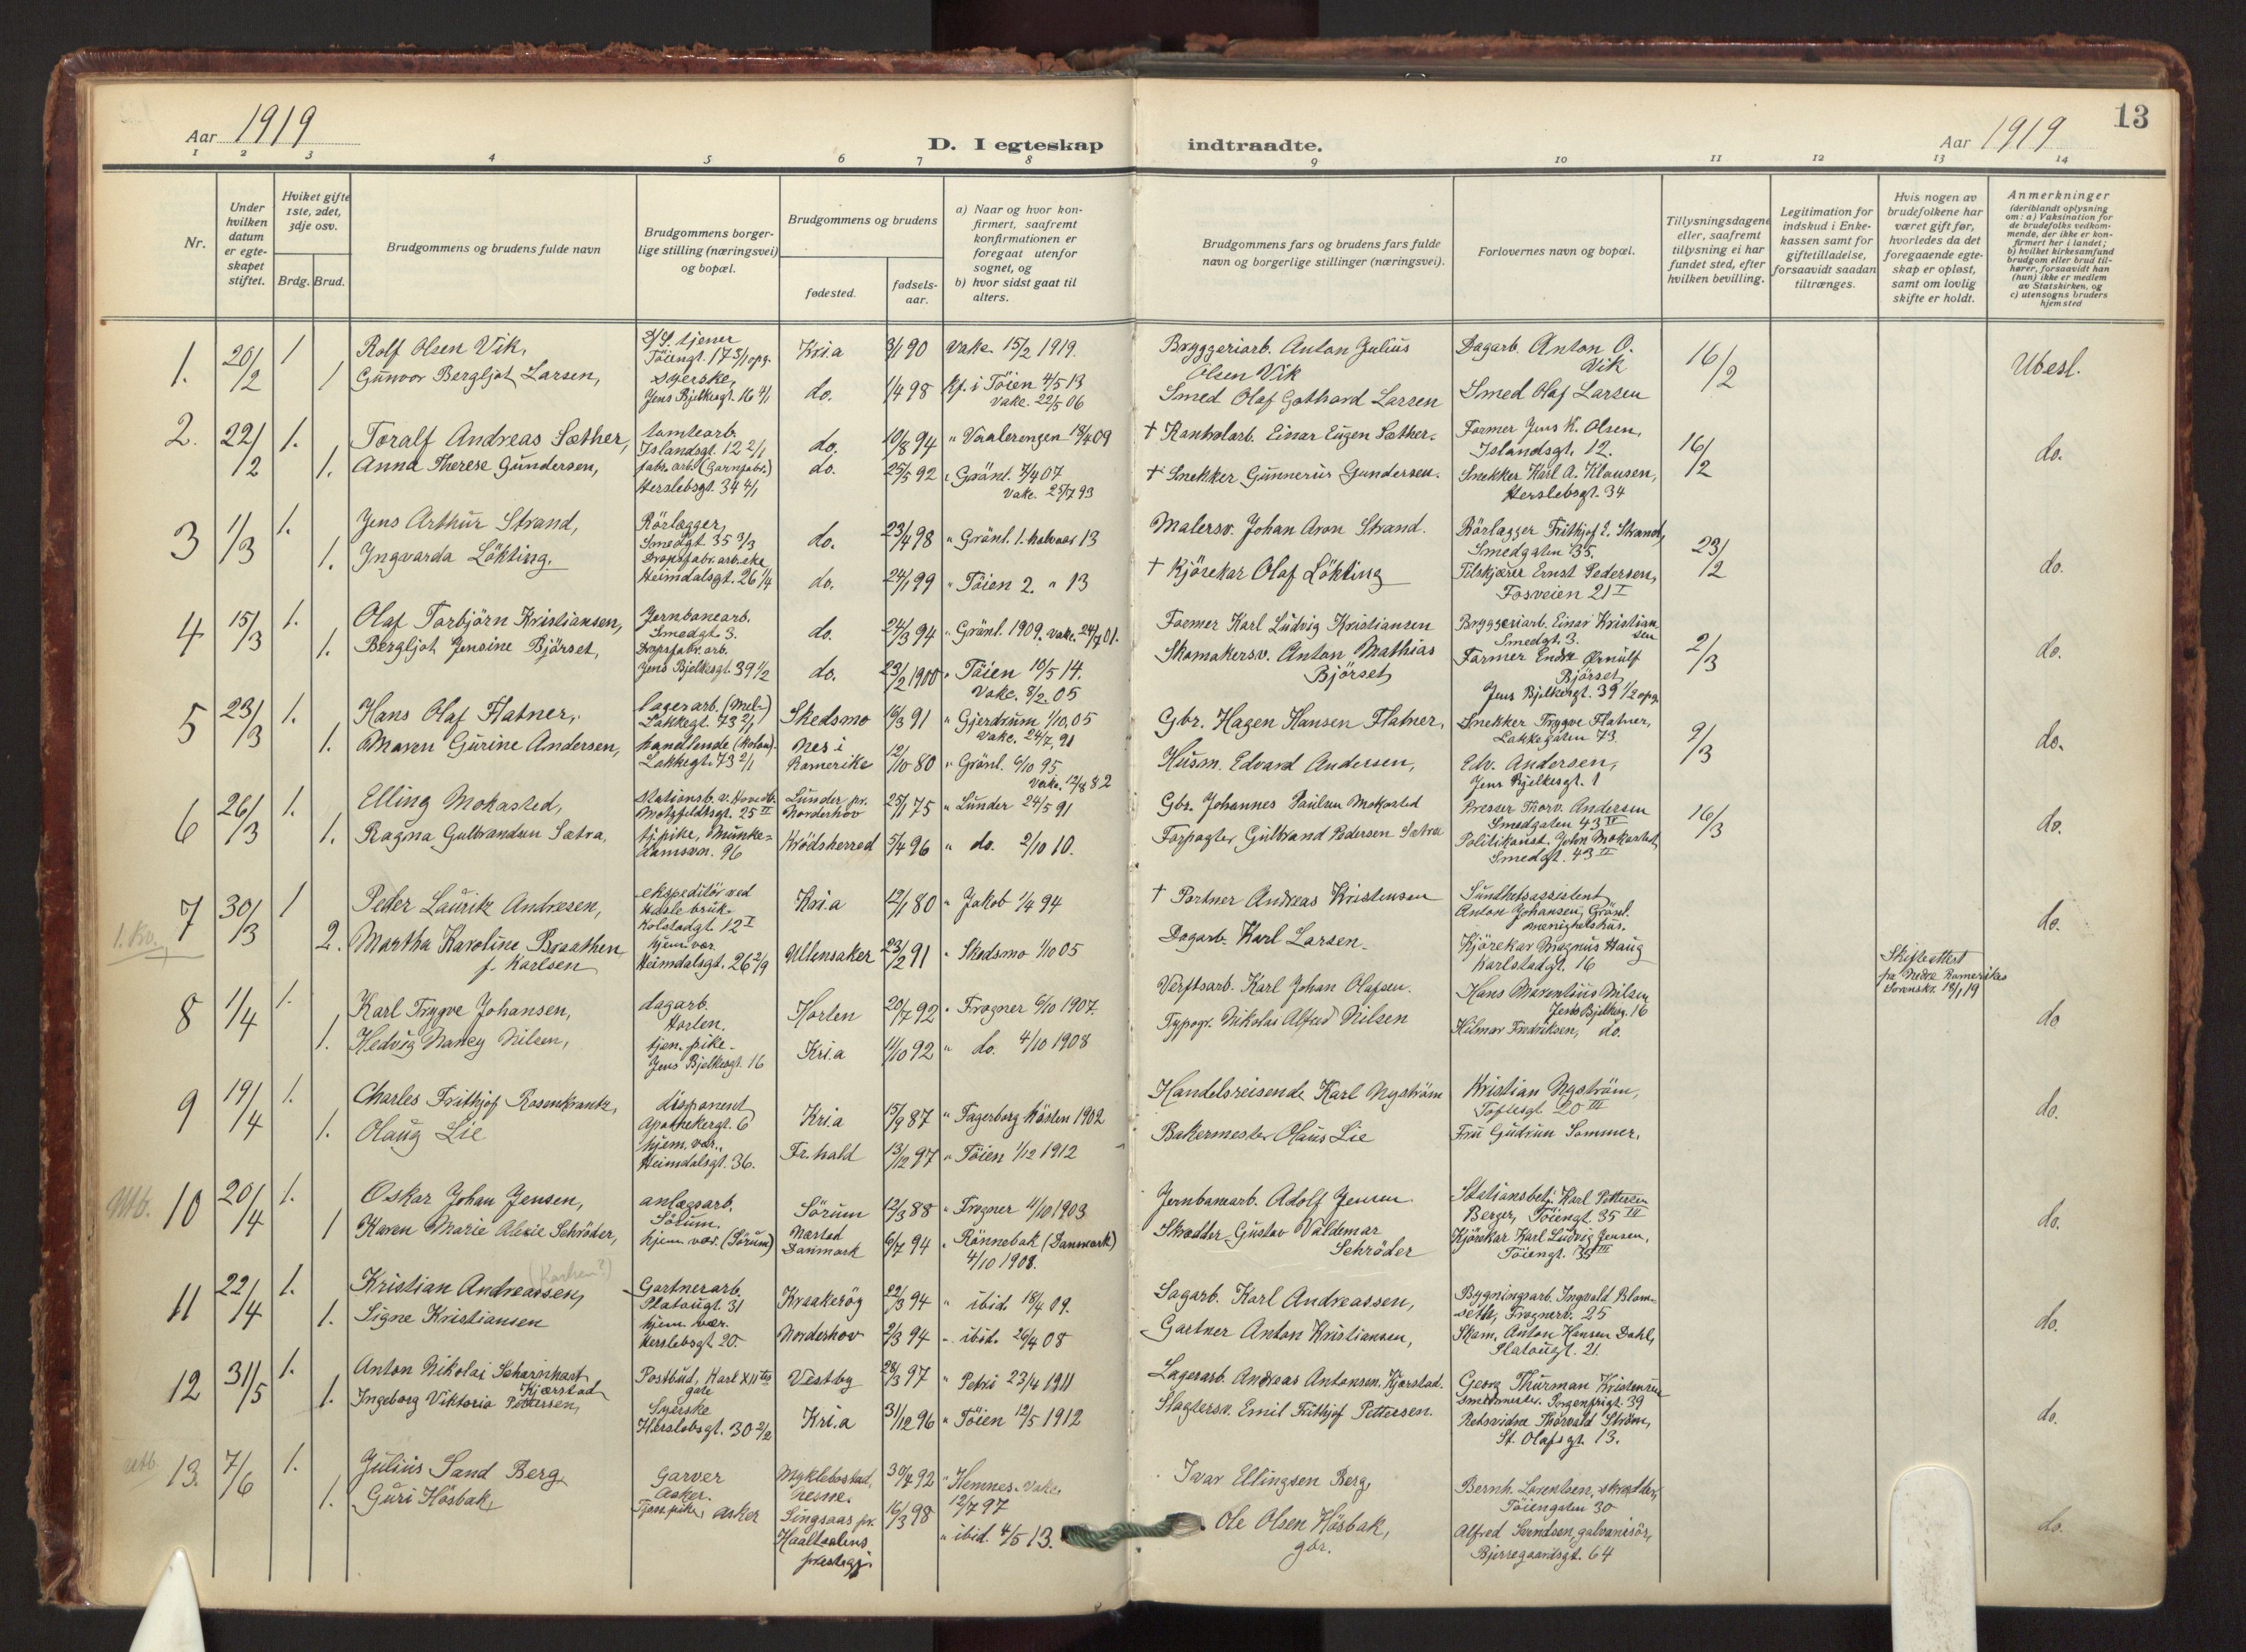 13
Aar 1919
D. I egteskap indtraadte.
Aar 1919
1 2 3 4 5 6 7 8 9 10 11 12 13 14
Nr.
Under hvilken datum er egteskapet stiftet.
Hviket gifte 1ste, 2det, 3dje osv.
Brdg. Brud.
Brudgommens og brudens fulde navn
Brudgommens borgerlige stilling (næringsvei) og bopæl.
Brudgommens og brudens
fødested.
fødselsaar.
a) Naar og hvor konfirmert, saafremt konfirmationen er foregaat utenfor sognet, og
b) hvor sidst gaat til alters.
Brudgommens fars og brudens fars fulde navn og borgerlige stillinger (næringsvei).
Forlovernes navn og bopæl.
Tillysningsdagene eller, saafremt tillysning ei har fundet sted, efter hvilken bevilling.
Legitimation for indskud i Enkekassen samt for giftetilladelse, forsaavidt saadan tiltrænges.
Hvis nogen av brudefolkene har været gift før, hvorledes da det foregaaende egteskap er opløst, samt om lovlig skifte er holdt.
Anmerkninger
(deriblandt oplysning om: a) Vaksination for de brudefolks vedkommende, der ikke er konfirmert her i landet; b) hvilket kirkesamfund brudgom eller brud tilhører, forsaavidt han (hun) ikke er medlem av Statskirken, og c) utensogns bruders hjemsted
1. 20/2 1 Rolf Olsen Vik, tjener Töiengt. 17 3/1 opg. Kri.a 3/1 90 Vakc. 15/2 1919. Bryggeriarb. Anton Julius Olsen Vik Dagarb. Anton O. Vik 16/2 Ubesl.
1 Gunvor Bergljot Larsen, Syerske, Jens Bjelkesgt. 16 4/1 do. 1/4 98 Kf. i Töien 4/5 13 Vakc. 22/5 06 Smed Olaf Gothard Larsen Smed Olaf Larsen
2. 22/2 1. Toralf Andreas Sæther, tomtearb. Islandsgt. 12 2/1 do. 10/8 94 " Vaalerengen 18/4 09 † Einar Eugen Sæther. Former Jens K. Olsen, Islandsgt. 12. 16/2 do.
1. Anna Therese Gundersen, fabr. arb. (Garnfabr.) Herslebsgt. 34 4/1 do. 25/5 92 " Grönl. 7/4 07 Vakc. 25/7 93 † Snekker Gunnerius Gundersen. Snekker Karl A. Klausen, Herslebsgt. 34
3 1/3 1. Jens Arthur Strand, Rörlægger, Smedgt. 35 3/3 do. 23/4 98 " Grönl. 1. halvaar 13 Malersv. Johan Aron Strand. Rörlægger Frithjof L. Strand, Smedgaten 35. 23/2 do.
1. Ingvarda Lökting. Dropsfabr. arb.ske Heimdalsgt. 26 1/4 do. 24/1 99 " Töien 2. " 13 † Kjörekar Olaf Lökting Ernst Pedersen, Fosveien 21 I
4 15/3 1. Olaf Torbjörn Kristiansen, Jernbanearb. Smedgt. 3. do. 24/3 94 " Grönl. 1909. Vakc. 24/7 01. Former Karl Ludvig Kristiansen Bryggeriarb. Einar Kristiansen Smedgt. 3. 2/3 do.
1. Bergljot Jensine Björset, Dropsfabr. arb. Jens Bjelkesgt. 39 1/2 do. 23/2 1900 " Töien 10/5 14. Vakc. 8/2 05 Skomakersv. Anton Mathias Björset Former Endre Ørnulf Björset, Jens Bjelkesgt. 39 1/2 opg.
5 23/3 1. Hans Olaf Flatner, lagerarb. (Mel-) Lakkegt. 73 2/1 Skedsmo 16/3 91 " Gjerdrum 1/10 05 Vakc. 24/7 91 Gbr. Hagen Hansen Flatner, Snekker Trygve Flatner, Lakkegaten 73. 9/3 do.
1. Maren Gurine Andersen, handlende (Kolon). Lakkegt. 73 2/1 Nes i Romerike 12/10 80 " Grönl. 6/10 95 Vakc. 12/8 82 Husm. Edvard Andersen, Edv. Andersen, Jens Bjelkesgt. 1
6 26/3 1. Elling Mokasted, Stationsb. v. Hovedb. Motzfeldtsgt. 25 II Lunder pr. Norderhov 25/1 75 " Lunder 24/5 91 Gbr. Johannes Paulsen Mokasted Presser Thorv. Andersen Smedgaten 43 IV 16/3 do.
1. Ragna Gulbrandsen Sætra, tj.pike, Munkedamsvn. 96 Krödsherred 5/4 96 " do. 2/10 10. Forpagter Gulbrand Pedersen Sætra Politikonst. John Mokasted, Smedgt. 43 II
1. Kv. 7 30/3 1 Peder Lauritz Andresen, ekspeditör ved Hasle bruk. Kolstadgt. 12 I Kri.a 12/1 80 " Jakob 1/4 94 † Portner Andreas Kristensen Sundhetsassistent Anton Johansen, Grönl. menighetshus. do.
2. Martha Karoline Braathen f. Karlsen hjem. vær. Heimdalsgt. 26 2/9 Ullensaker 23/2 91 " Skedsmo 1/10 05 Dagarb. Karl Larsen. Kjörekar Magnus Haug Karlstadgt. 16 Skifteattest fra Nedre Romerikes Sorenskr. 18/1 19
8 1/4 1. Karl Trygve Johansen, dagarb. Horten. Horten 20/7 92 " Frogner 6/10 1907. Verftsarb. Karl Johan Olafsen. Hans Marentius Nilsen Jens Bjelkesg. 16 do
1. Hedvig Nancy Nilsen, tjen. pike. Jens Bjelkesgt. 16 Kri.a 11/10 92 " do. 4/10 1908 Typogr. Nikolai Alfred Nilsen Hilmar Fredriksen, do.
9 19/4 1. Charles Frithjof Rosenkrantz, disponent Apothekergt. 6 Kri.a 15/9 87 " Fagerborg hösten 1902 Handelsreisende Karl Nyström Kristian Nyström, Toftesgt. 20 III do.
1. Olaug Lie hjem. vær., Heimdalsgt. 36. Fr.hald 13/12 97 " Töien 1/12 1912 Bakermester Olaus Lie Fru Gudrun Sommer.
10 20/4 1. Oskar Johan Jensen, anlægsarb. Sörum. Sörum 12/3 88 " Frogner 11/10 1903 Jernbanearb. Adolf Jensen. Stationsbetj. Karl Pettersen Berger, Töiengt. 35 III do.
1 Karen Marie Alexie Schröder, hjem. vær. (Sörum) Næstved Danmark 6/7 94 " Rönnebæk (Danmark) 4/10 1908. Skrædder Gustav Valdemar Schröder Kjörekar Karl Ludvig Jensen, Töiengt. 35 III
11 22/4 1. Kristian Andreassen, Gartnerarb. Platougt. 31 Kraakeröy 22/3 94 " ibid. 18/4 09. Sagarb. Karl Andreassen, Bygningsarb. Ingvald Blomseth, Frognerv. 25 do.
1. Signe Kristiansen hjem. vær. Herslebsgt. 20. Norderhov 2/3 94 " ibid. 26/4 08 Gartner Anton Kristiansen, Skom. Anton Hansen Dahl, Platougt. 21.
12 31/5 1. Anton Nikolai Scharnhart Kjærstad Postbud, Karl XII tes gate Vestby 28/3 97 " Petri 23/4 1911 Lagerarb. Andreas Antonsen Kjærstad. Georg Thurman Kristensen Sorgenfrigt. 39 do.
1. Ingeborg Viktoria Pettersen, Syerske Herslebsgt. 30 2/2 Kri.a 31/12 96 " Töien 12/5 1912 Slagtersv. Emil Frithjof Pettersen. Thorvald Ström, St. Olafsgt. 13.
13. 7/6 1. Julius Sand Berg Garver Asker. Myklebostad, Nesne. 30/4 92 " Hemnes. Vakc. 12/7 97 Ivar Ellingsen Berg, Bernh. Lorentsen, skrædder, Töiengaten 30 do.
1. Guri Hösbak, Tjen.pike, Asker Singsaas pr. Haaltaalens prestegj. 16/3 98 " ibid. 4/5 13. Ole Olsen Hösbak, gbr. Alfred Svendsen, galvanisör, Bjerregaardsgt. 64